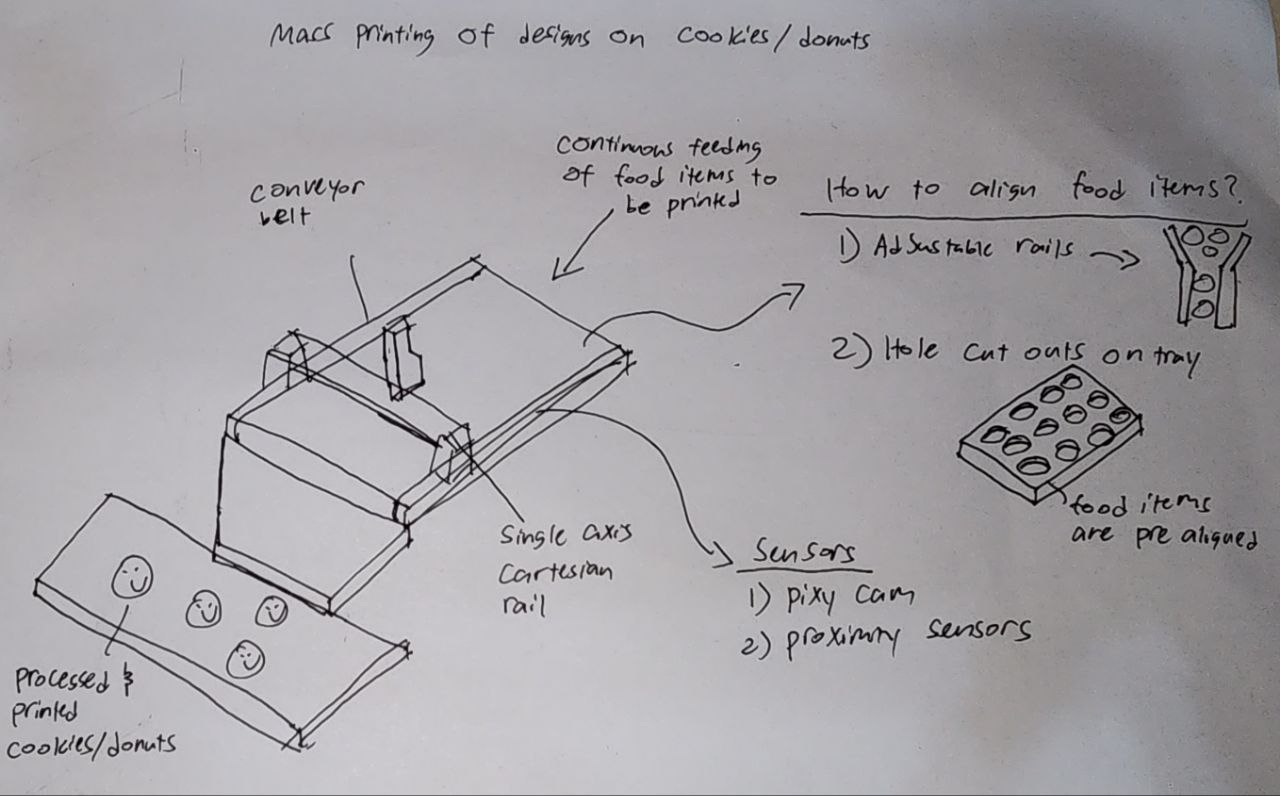 Mass printing of designs on cookies/donuts
continuous feeding
of food items to
be printed
conveyor
belt
How to align food items?
1) Adjustable rails
2) Hole cut outs on tray
food items
are pre aligned
single axis
cartesian
rail
Sensors
1) pixy cam
2) proximity sensors
processed &
printed
cookies/donuts